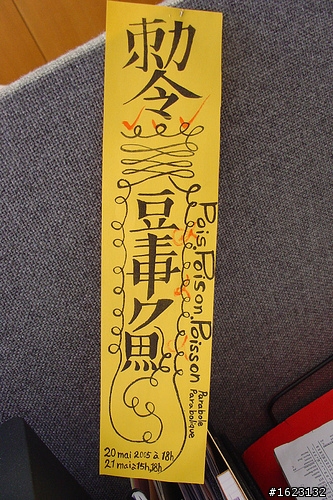 勅令
豆毒魚
Pois.Poison.Poisson
Parabole
Parabolique
20 mai 2005 à 18h
21 mai: 15h, 18h
#1623132